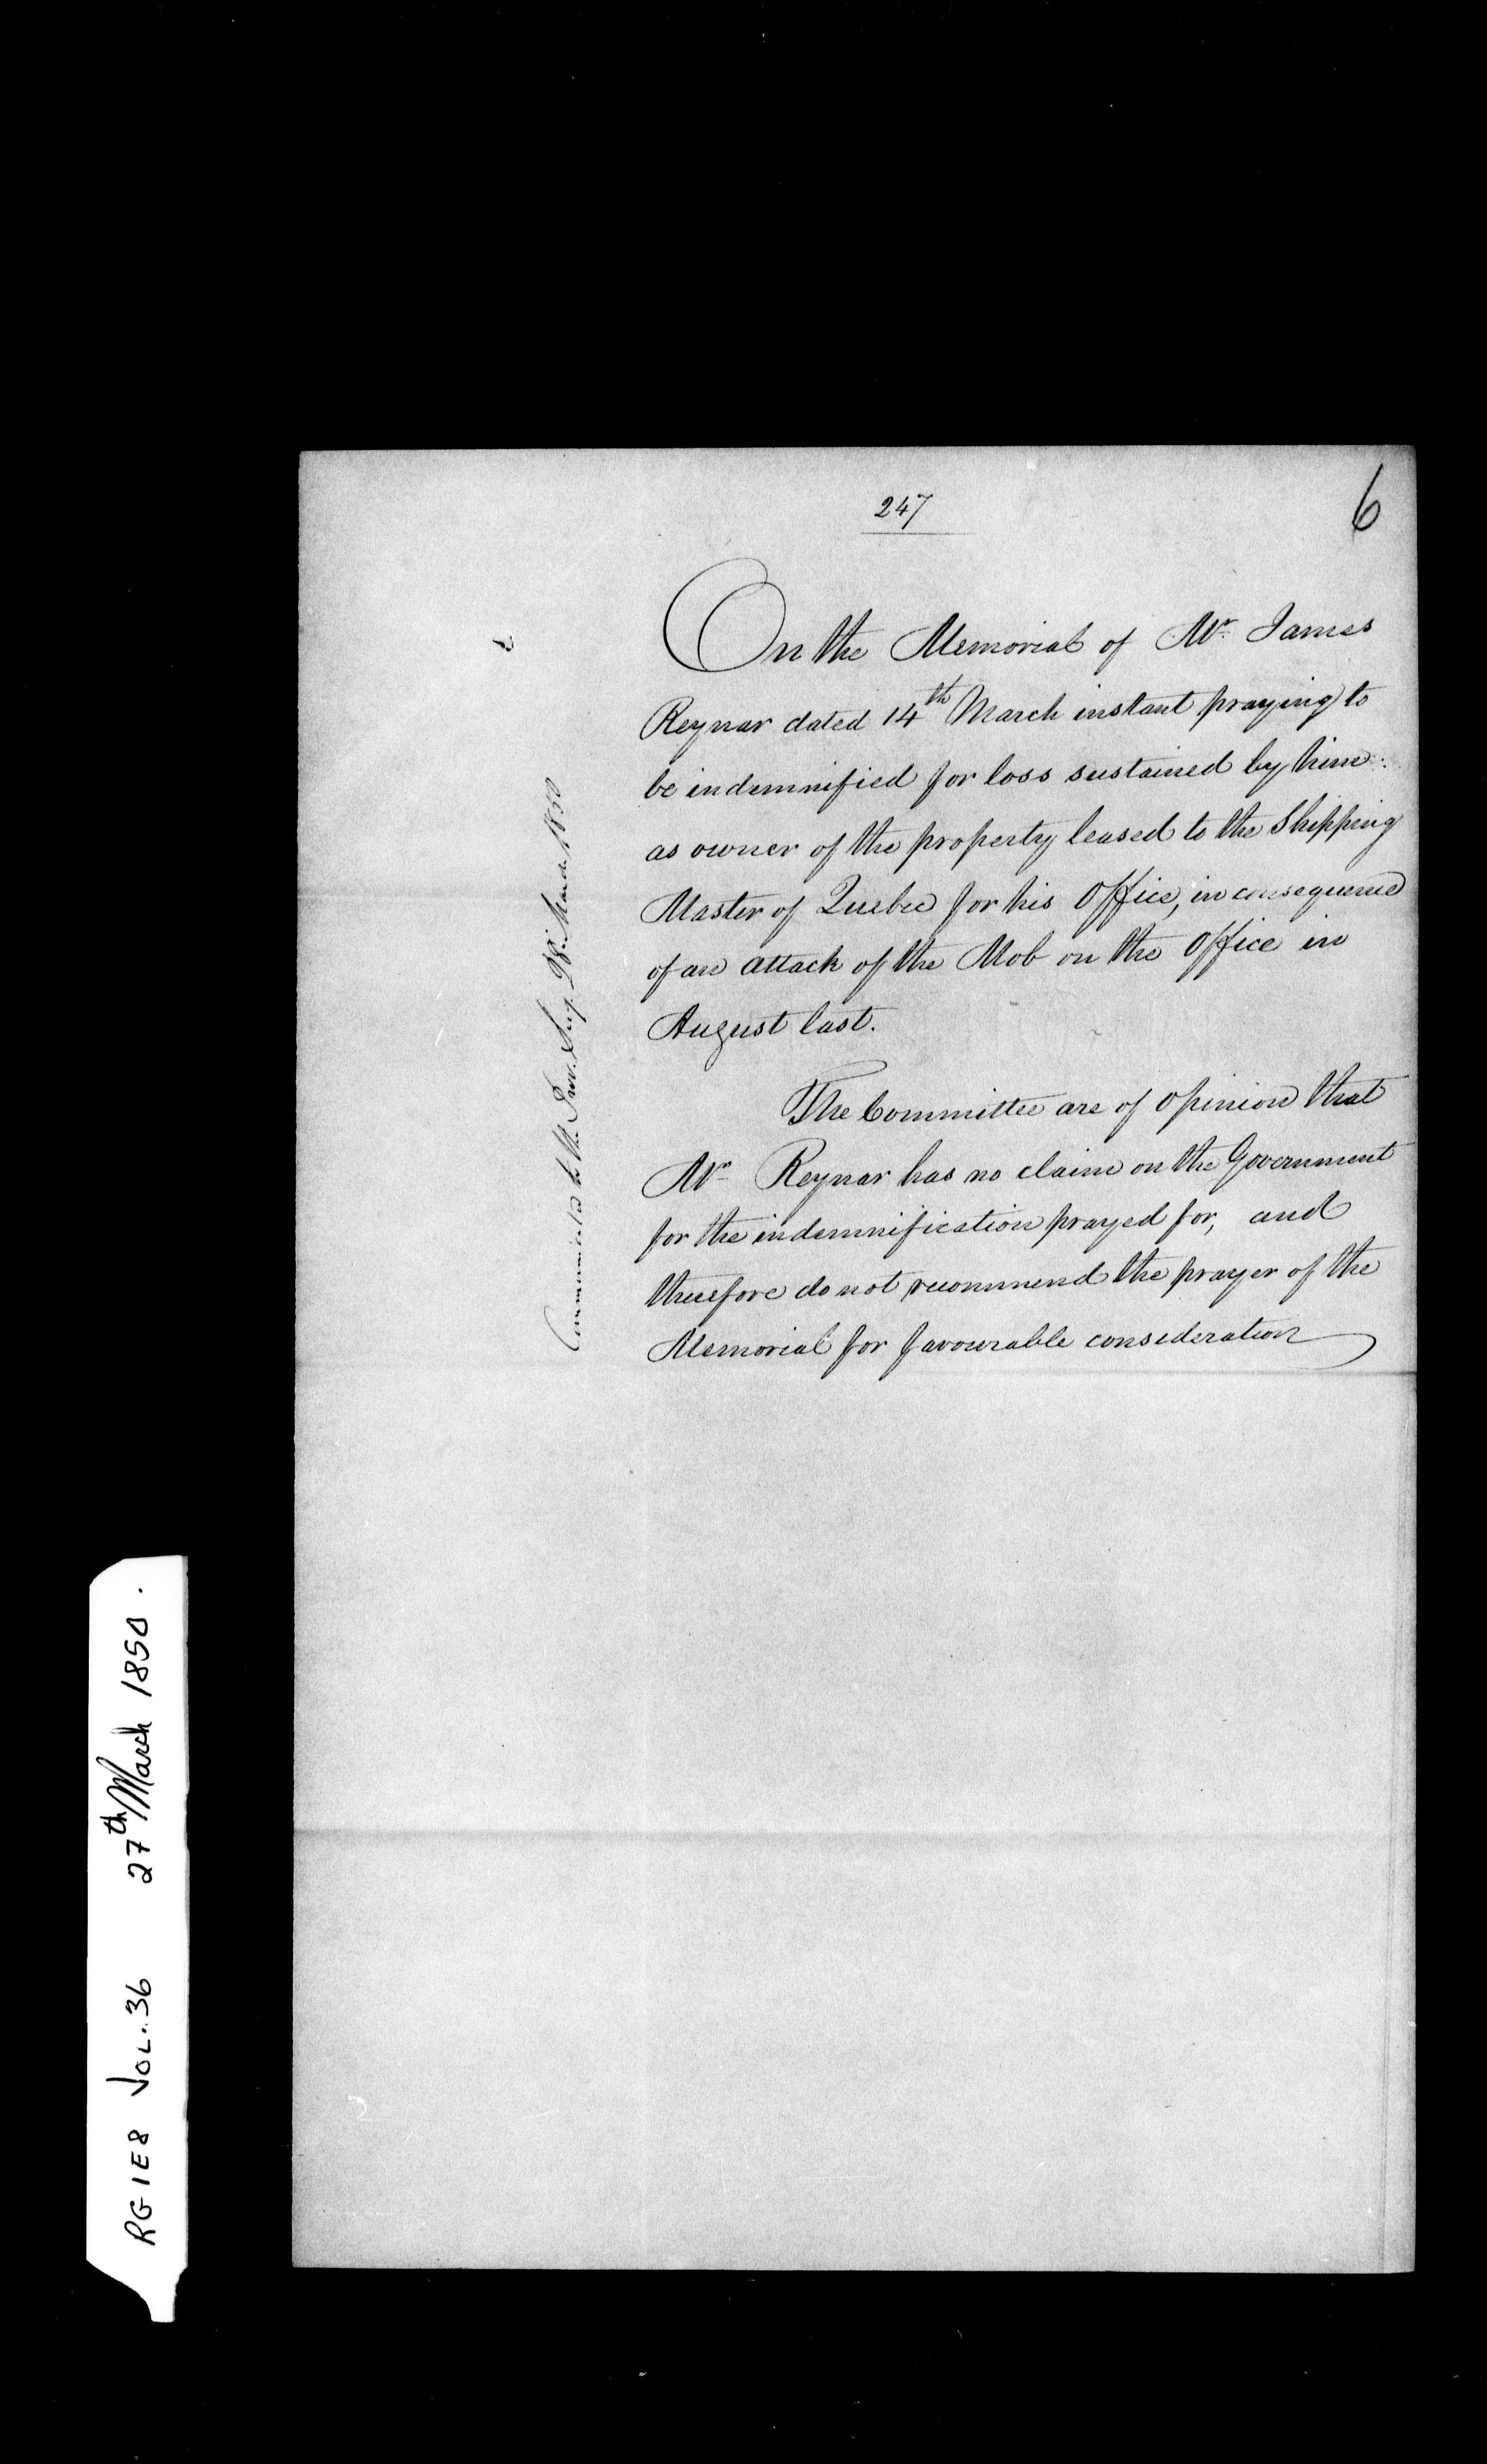 247
6
On the Memorial of Mr. James
Reynar dated 14th March instant praying to
be indemnified for loss sustained by him
as owner of the property leased to the Shipping
Master of Quebec for his Office, in consequence
of an attack of the Mob on the Office in
August last.
The Committee are of opinion that
Mr. Reynar has no claim on the Government
for the indemnification prayed for, and
therefore do not recommend the prayer of the
Memorial for favourable consideration
to the Prov. Secy. 28. March 1850
RG 1E8 VOL. 36 27th March 1850.